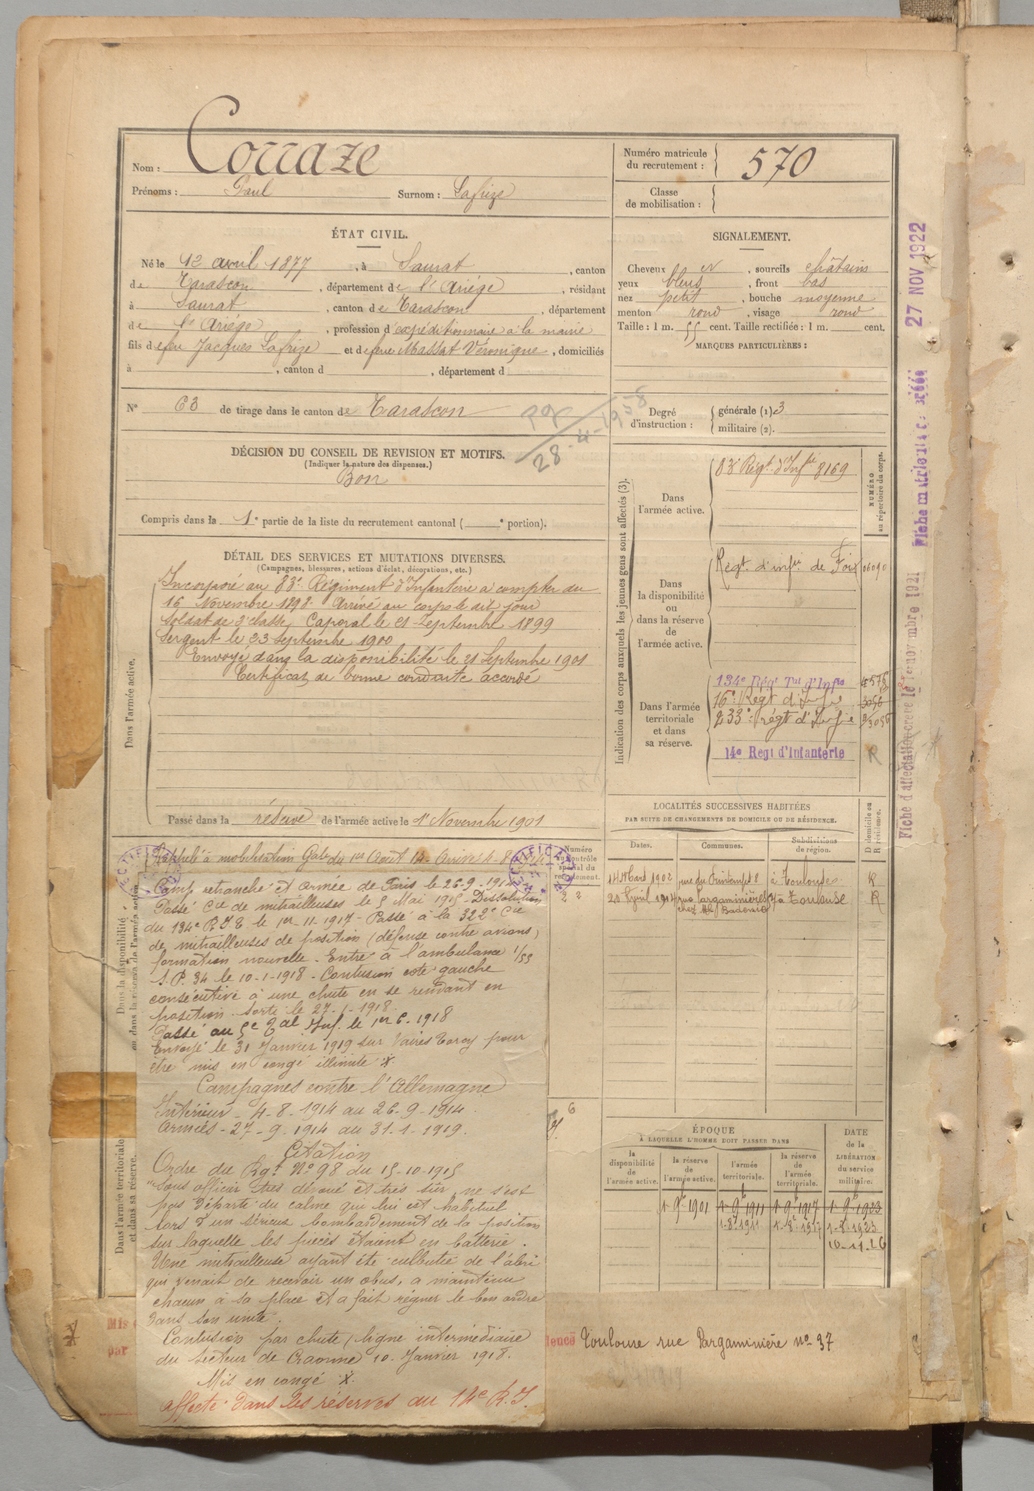 Nom : Corraze
Prénoms : Paul Surnom : Lafrize
Numéro matricule du recrutement : 570
Classe de mobilisation :
ÉTAT CIVIL.
Né le 12 avril 1877, à Saurat, canton
de Tarascon, département de l'Ariège, résidant
à Saurat, canton de Tarascon, département
de l'Ariège, profession d'expéditionnaire à la mairie
fils de feu Jacques Lafrize et de feue Massat Véronique, domiciliés
à , canton d , département d
SIGNALEMENT.
Cheveux et , sourcils châtains
yeux bleus , front bas
nez petit , bouche moyenne
menton rond , visage rond
Taille : 1 m. 55 cent. Taille rectifiée : 1 m. cent.
MARQUES PARTICULIÈRES :
N° 63 de tirage dans le canton de Tarascon
28-4-1958
Degré d'instruction : générale (1) 3
militaire (2).
DÉCISION DU CONSEIL DE REVISION ET MOTIFS.
(Indiquer la nature des dispenses.)
Bon
Compris dans la 1e partie de la liste du recrutement cantonal ( e portion).
DÉTAIL DES SERVICES ET MUTATIONS DIVERSES.
(Campagnes, blessures, actions d'éclat, décorations, etc.)
Dans l'armée active.
Incorporé au 83e Régiment d'Infanterie à compter du
16 Novembre 1898. Arrivé au corps le dit jour
Soldat de 2e classe, Caporal le 21 Septembre 1899
Sergent le 23 Septembre 1900
Envoyé dans la disponibilité le 21 Septembre 1901
Certificat de bonne conduite accordé
Passé dans la réserve de l'armée active le 1er Novembre 1901
Indication des corps auxquels les jeunes gens sont affectés (3).
NUMÉRO au répertoire du corps.
Dans l'armée active.
83e Régt d'Infie 8169
Dans la disponibilité ou dans la réserve de l'armée active.
Régt d'infie de Foix
Dans l'armée territoriale et dans sa réserve.
134e Régt Tal d'Infie
16e Régt d'Infie
233e régt d'Infie
14e Regt d'Infanterie R
27 NOV 1922
LOCALITÉS SUCCESSIVES HABITÉES
PAR SUITE DE CHANGEMENTS DE DOMICILE OU DE RÉSIDENCE.
Dates. Communes. Subdivisions de région. Domicile ou Résidence.
14 Mars 1902 rue du Printemps 8 à Toulouse R
rue Pargaminières à Toulouse R
Dans la disponibilité
Dans l'armée territoriale et dans sa réserve.
RECTIFICATION
Rappelé à mobilisation Gale du 1er Août 14
Camp retranché et armée de Paris le 26.9.
Passé Cie de mitrailleuses le 5 Mai 1915. Dissolution
du 134e R.I.T. le 1er.11.1917 - Passé à la 322e Cie
de mitrailleuses de position (défense contre avions)
formation nouvelle. Entré à l'ambulance 1/55
S.P. 34 le 10-1-1918. Contusion côté gauche
consécutive à une chute en se rendant en
position. Sorti le 27-1-1918
Passé au 5e Bal Inf. le 1er 6-1918
Envoyé le 31 Janvier 1919 sur Vaires Torcy pour
être mis en congé illimité X
Campagnes contre l'Allemagne
Intérieur - 4-8-1914 au 26-9-1914.
Armées - 27-9-1914 au 31-1-1919.
Citation
Ordre du Rgt N° 98 du 15-10-1915
"Sous officier très dévoué et très sûr, ne s'est
pas départi du calme qui lui est habituel
lors d'un sérieux bombardement de la position
sur laquelle les pièces étaient en batterie.
Une mitrailleuse ayant été culbutée de l'abri
qui venait de recevoir un obus, a maintenu
chacun à sa place et a fait régner le bon ordre
dans son unité.
Contusion par chute (ligne intermédiaire
du secteur de Craonne 10 Janvier 1918.
Mis en congé X.
Affecté dans les réserves du 14e R.I.
ÉPOQUE
À LAQUELLE L'HOMME DOIT PASSER DANS
la disponibilité de l'armée active.
la réserve de l'armée active.
l'armée territoriale.
la réserve de l'armée territoriale.
DATE de la LIBÉRATION du service militaire.
1er 9bre 1901 1er 9bre 1911 1er 9bre 1917 1er 9bre 1923
1-8-1911 1-8-1917 1-8-1923
10-11-26
Toulouse rue Pargaminière n° 37